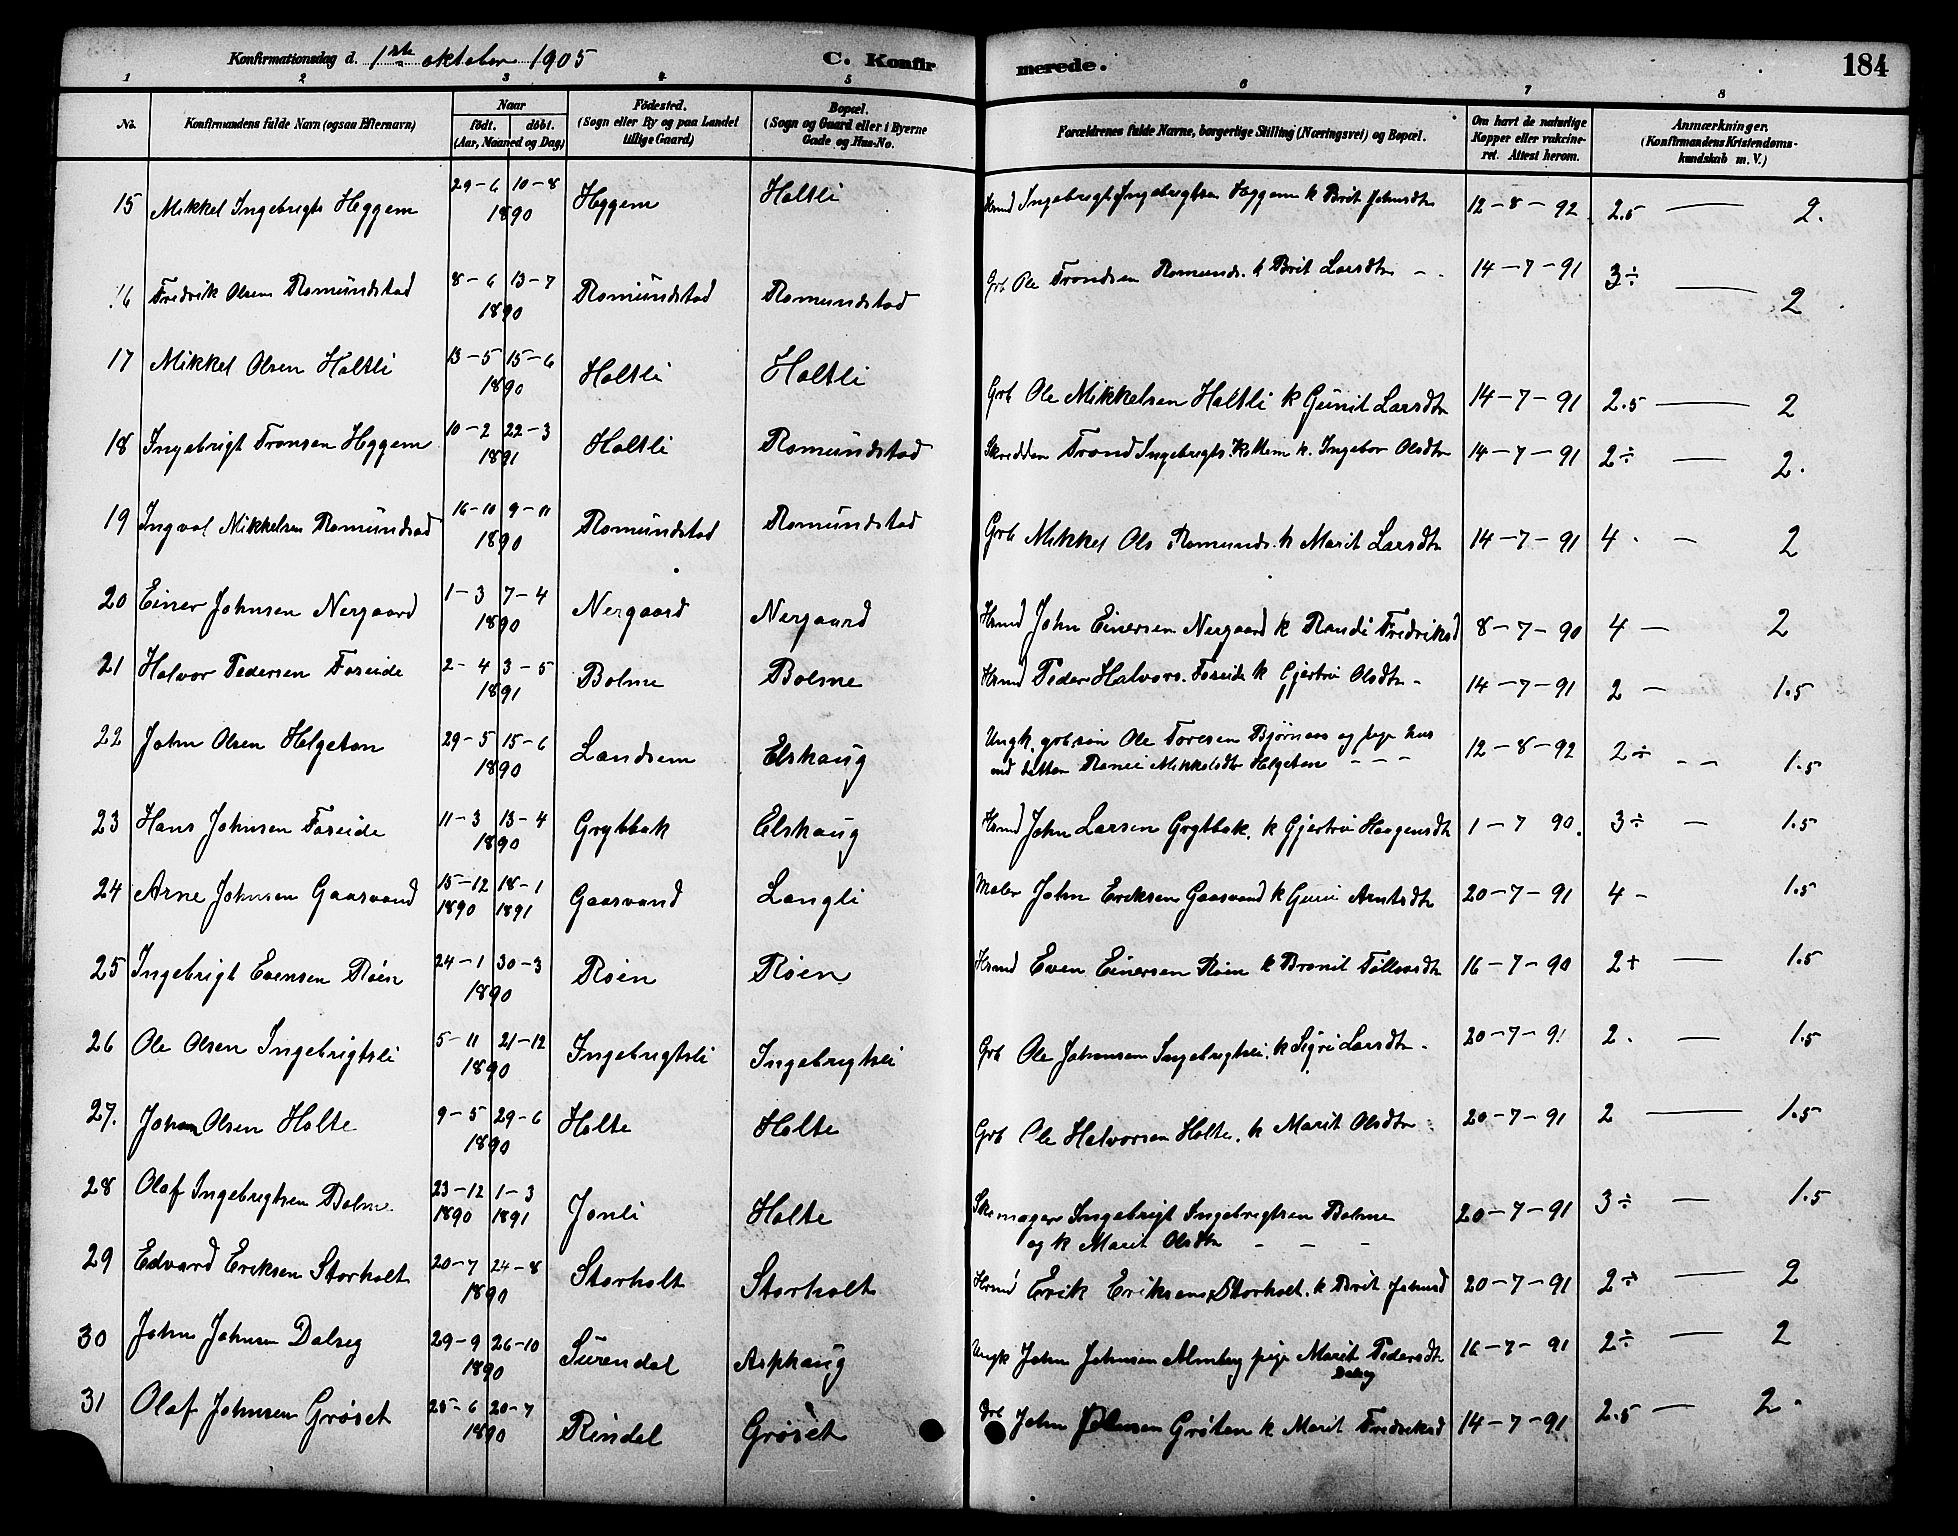 Konfirmationsdag d. 1ste oktober 1905 C. Konfirmerede. 184
1 2 3 4 5 6 7 8
No. Konfirmandens fulde Navn (ogsaa Efternavn) Naar födt. döbt. (Aar, Maaned og Dag) Födested. (Sogn eller By og paa Landet tillige Gaard) Bopæl. (Sogn og Gaard eller i Byerne Gade og Hus-No. Forældrenes fulde Navne, borgerlige Stilling (Næringsvei) og Bopæl. Om havt de naturlige Kopper eller vakcineret. Attest herom. Anmærkninger. (Konfirmandens Kristendomskundskab m. V.)
15 Mikkel Ingebrigts Heggem 29-6 10-8 1890 Heggem Holtli Hmd Ingebrigt Ingebrigtsen Heggem k Brit Johnsdtr 12-8-92 2.5 — 2.
16 Fredrik Olsen Romundstad 8-6 13-7 1890 Romundstad Romundstad Grb Ole Trondsen Romunds. k Brit Larsdtr - . 14-7-91 3÷ — 2
17 Mikkel Olsen Holtli 13-5 15-6 1890 Holtli Holtli Grb Ole Mikkelsen Holtli k Gunil Larsdtr 14-7-91 2.5 — 2
18 Ingebrigt Tronsen Heggem 10-2 22-3 1891 Holtli Romundstad Skrædder Trond Ingebrigts. k. Ingebor Olsdtr 14-7-91 2÷ — 2.
19 Ingval Mikkelsen Romundstad 16-10 9-11 1890 Romundstad Romundstad Grb Mikkel Ols Romunds. k Marit Larsdtr 14-7-91 4 - 2
20 Einer Johnsen Nergaard 1-3 7-4 1890 Nergaard Nergaard Hmd John Einersen Nergaard k Randi Fredriksd 8-7-90 4 — 2
21 Halvor Pedersen Foseide 2-4 3-5 1891 Bolme Bolme Hmd Peder Halvors. Foseide k Gjertru Olsdtr - 14-7-91 2 — 1.5
22 John Olsen Helgeton 29-5 15-6 1890 Landsem Elshaug Ungk. grbsøn Ole Toresen Bjørnaas og pige
Mikkelsdtr Helgeton - - - 12-8-92 2÷ - - 1.5
23 Hans Johnsen Foseide 11-3 13-4 1890 Grytbak Elshaug Hmd John Larsen Grytbak. k Gjertru Haagensdtr 1-7 90. 3÷ — 1.5
24 Arne Johnsen Gaasvand 15-12 1890 18-1 1891 Gaasvand Langli Maler John Eriksen Gaasvand k Guru Arntsdtr 20-7-91 4 - 1.5
25 Ingebrigt Evensen Røen 24-1 30-3 1890 Røen Røen Hmd Even Einersen Røen k Bronil Tollevsdtr 16-7-90 2+ — 1.5
26 Ole Olsen Ingebrigtsli 5-11 21-12 1890 Ingebrigtsli Ingebrigtsli Grb Ole Johansen Ingebrigtsli. k Sigri Larsdtr - 20-7-91 2. — 1.5
27. Johan Olsen Holte 9-5 29-6 1890 Holte Holte Grb Ole Halvorsen Holte. k Marit Olsdtr 20-7-91 2 — 1.5
28 Olaf Ingebrigtsen Bolme 23-12 1890 1-3 1891 Jonli Holte Skomager Ingebrigt Ingebrigtsen Bolme
og k Marit Olsdtr - - - 20-7-91 3÷ — 1.5
29 Edvard Eriksen Storholt 20-7 24-8 1890 Storholt Storholt Hmd Erik Eriksen Storholt. k Brit Johnsd 20-7-91 2÷ — 2
30 John Johnsen Dalseg 29-9 26-10 1890 Surendal Asphaug Ungk John Johnsen Almberg pige Marit Pedersdtr
Dalseg 16-7-91 2÷ — 2
31 Olaf Johnsen Grøset 25-6 20-7 1890 Rindal Grøset Grb John Johnsen Grøten k Marit Fredriksd 14-7-91 2.5 — 2.